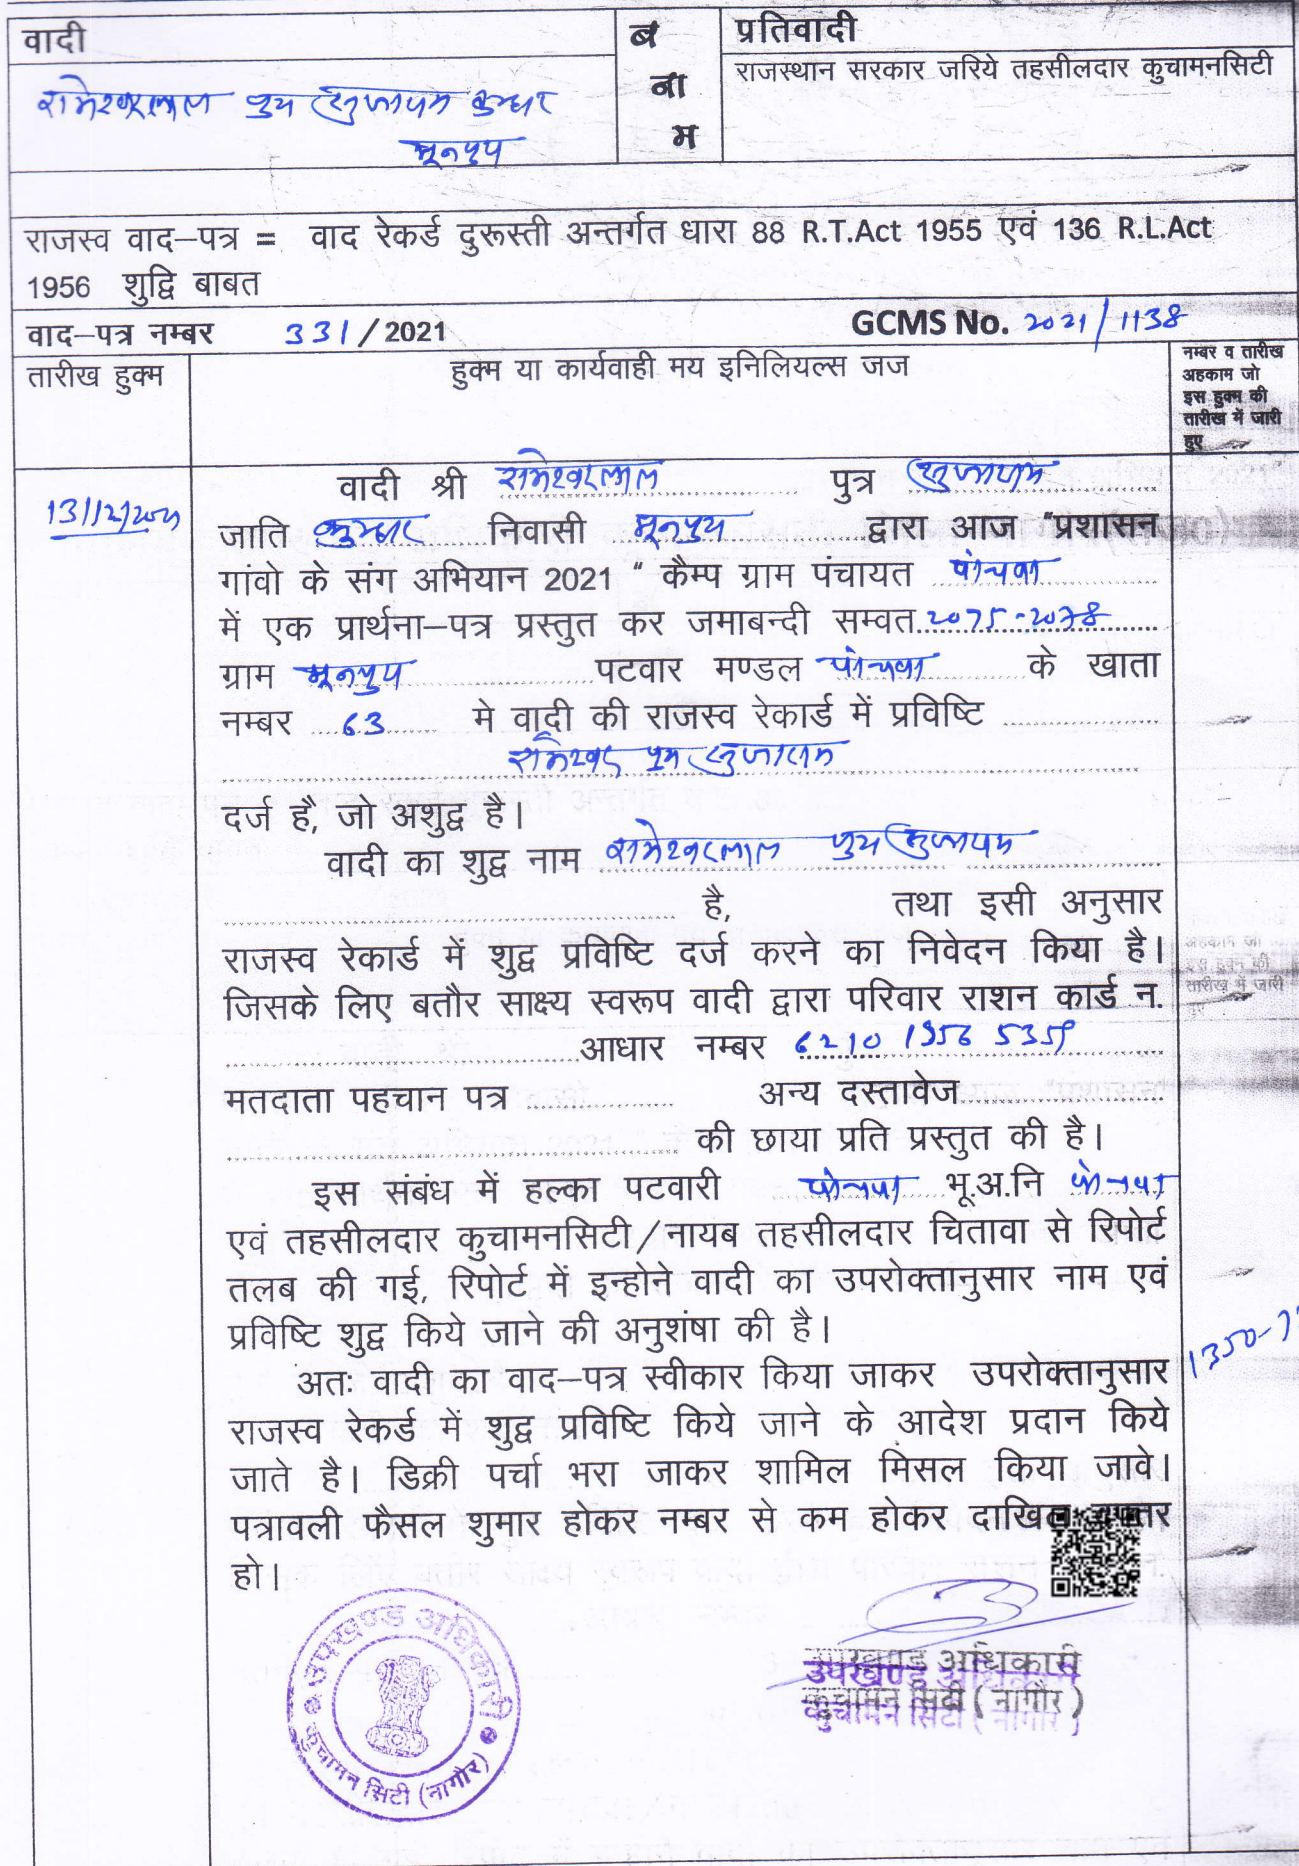 वादी
ब
ना
म
प्रतिवादी
राजस्थान सरकार जरिये तहसीलदार कुचामनसिटी
रामेश्वरलाल पुत्र सुजाराम कुम्हार
राजस्व वाद–पत्र = वाद रेकर्ड दुरूस्ती अन्तर्गत धारा 88 R.T.Act 1955 एवं 136 R.L.Act
1956 शुद्वि बाबत
वाद–पत्र नम्बर 331/2021 GCMS No. 2021/1138
तारीख हुक्म
हुक्म या कार्यवाही मय इनिलियल्स जज
नम्बर व तारीख
अहकाम जो
इस हुक्म की
तारीख में जारी
हुए
13/12/2021
वादी श्री रामेश्वरलाल पुत्र सुजाराम
जाति कुम्हार निवासी द्वारा आज "प्रशासन
गांवो के संग अभियान 2021 " कैम्प ग्राम पंचायत पांचवा
में एक प्रार्थना–पत्र प्रस्तुत कर जमाबन्दी सम्वत 2075-2078
ग्राम पटवार मण्डल पांचवा के खाता
नम्बर 63 मे वादी की राजस्व रेकार्ड में प्रविष्टि
रामेश्वर पुत्र सुजाराम
दर्ज है, जो अशुद्व है।
वादी का शुद्व नाम रामेश्वरलाल पुत्र सुजाराम
है, तथा इसी अनुसार
राजस्व रेकार्ड में शुद्व प्रविष्टि दर्ज करने का निवेदन किया है।
जिसके लिए बतौर साक्ष्य स्वरूप वादी द्वारा परिवार राशन कार्ड न.
आधार नम्बर 6210 1956 5359
मतदाता पहचान पत्र अन्य दस्तावेज
की छाया प्रति प्रस्तुत की है।
इस संबंध में हल्का पटवारी पांचवा भू.अ.नि पांचवा
एवं तहसीलदार कुचामनसिटी/नायब तहसीलदार चितावा से रिपोर्ट
तलब की गई, रिपोर्ट में इन्होने वादी का उपरोक्तानुसार नाम एवं
प्रविष्टि शुद्व किये जाने की अनुशंषा की है।
अतः वादी का वाद–पत्र स्वीकार किया जाकर उपरोक्तानुसार
राजस्व रेकर्ड में शुद्व प्रविष्टि किये जाने के आदेश प्रदान किये
जाते है। डिक्री पर्चा भरा जाकर शामिल मिसल किया जावे।
पत्रावली फैसल शुमार होकर नम्बर से कम होकर दाखिल दफ्तर
हो।
उपखण्ड अधिकारी
कुचामन सिटी (नागौर)
उपखण्ड अधिकारी
कुचामन सिटी ( नागौर )